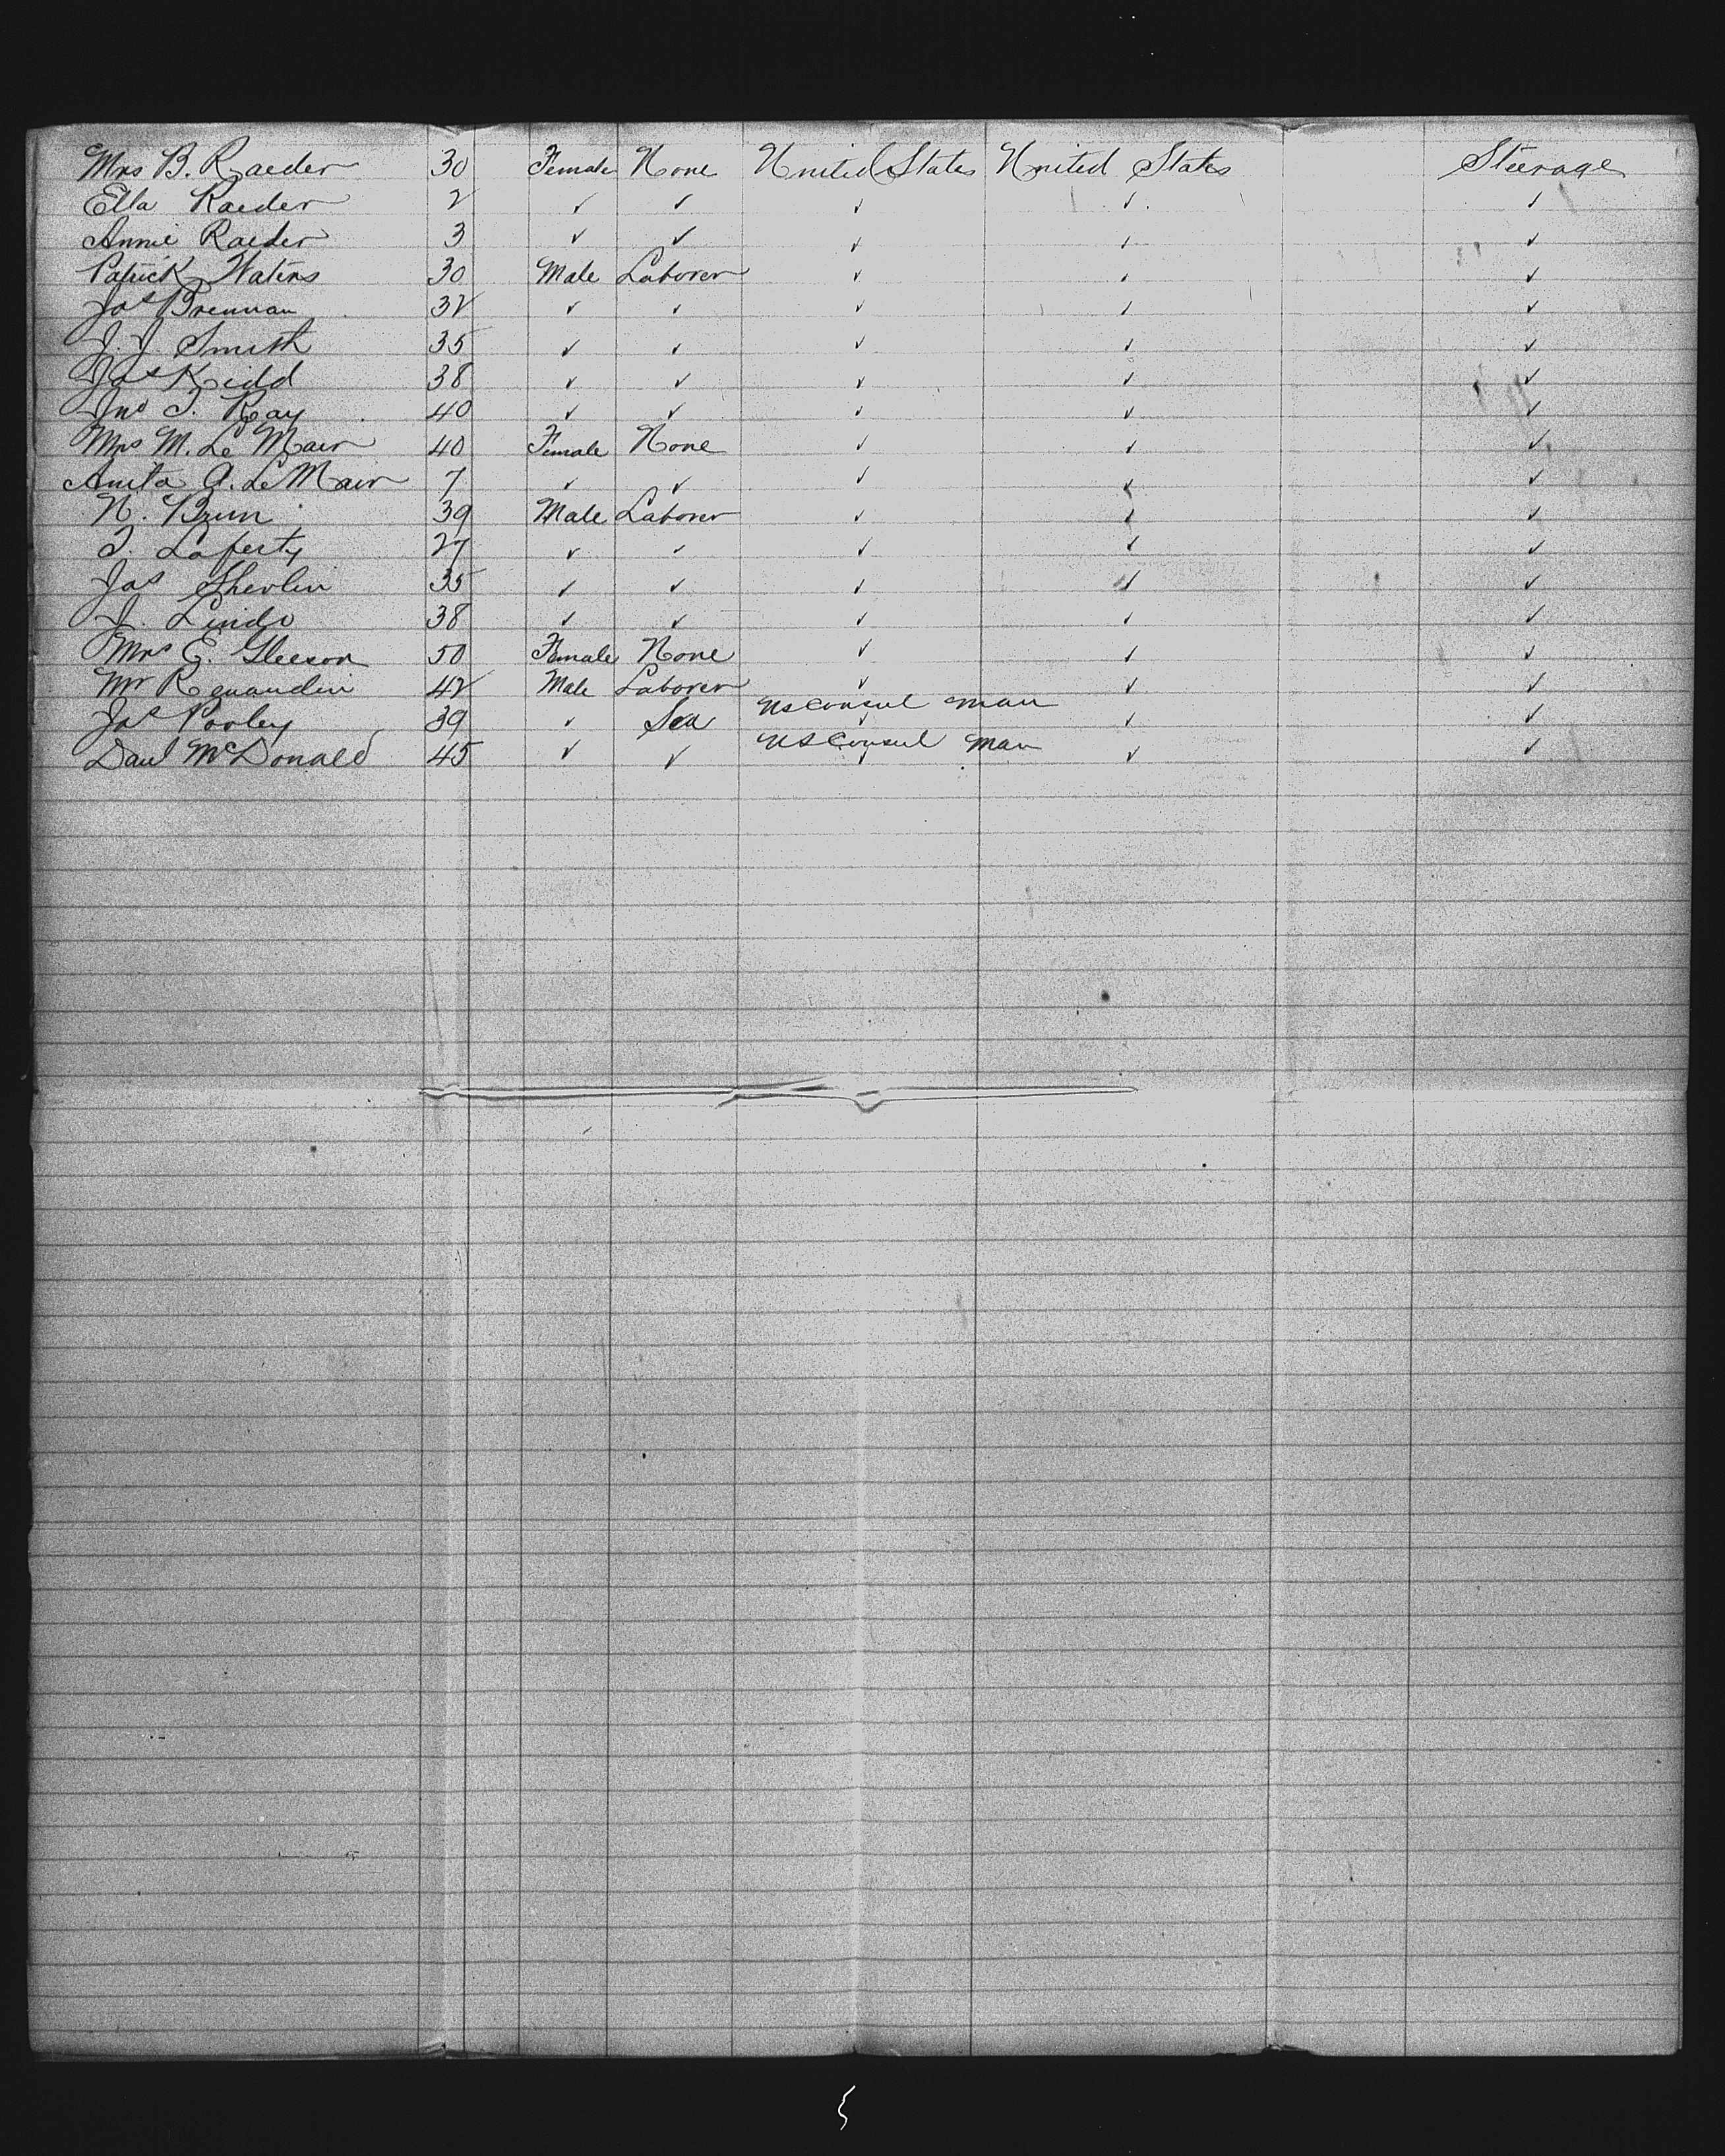 Mrs B. Raeder 30 Female None United States United States Steerage
Ella Raeder 2 ✓ ✓ ✓ ✓ ✓
Annie Raeder 3 ✓ ✓ ✓ ✓ ✓
Patrick Waters 30 Male Laborer ✓ ✓ ✓
Jas Brennan 32 ✓ ✓ ✓ ✓ ✓
J. J. Smith 35 ✓ ✓ ✓ ✓ ✓
Jas Kidd 38 ✓ ✓ ✓ ✓ ✓
Jno T. Ray 40 ✓ ✓ ✓ ✓ ✓
Mrs M. Le Mair 40 Female None ✓ ✓ ✓
Anita A. Le Mair 7 ✓ ✓ ✓ ✓ ✓
N. Brun 39 Male Laborer ✓ ✓ ✓
T. Laferty 27 ✓ ✓ ✓ ✓ ✓
Jas Shevlin 35 ✓ ✓ ✓ ✓ ✓
J. Lindo 38 ✓ ✓ ✓ ✓ ✓
Mrs E. Gleeson 50 Female None ✓ ✓ ✓
Mr Renaudin 42 Male Laborer ✓ ✓ ✓
Jas Pooley 39 ✓ Sea US Consul man ✓ ✓ ✓
Danl McDonald 45 ✓ ✓ US Consul Man ✓ ✓ ✓